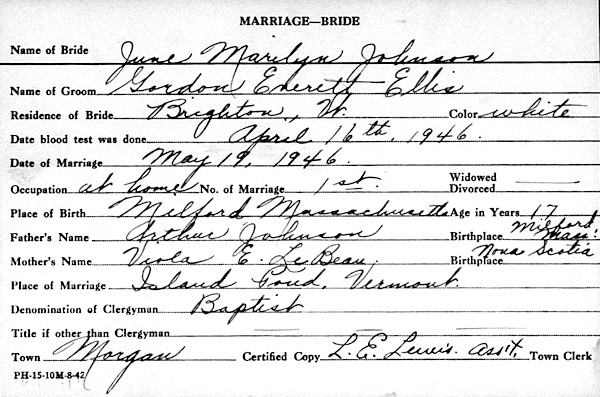 MARRIAGE—BRIDE
Name of Bride June Marilyn Johnson
Name of Groom Gordon Everett Ellis
Residence of Bride Brighton, Vt. Color white
Date blood test was done April 16th, 1946.
Date of Marriage May 19, 1946.
Occupation at home No. of Marriage 1st. Widowed Divorced
Place of Birth Milford Massachusetts Age in Years 17
Father's Name Arthur Johnson Birthplace Milford Mass.
Mother's Name Viola E. LeBeau. Birthplace Nova Scotia
Place of Marriage Island Pond, Vermont.
Denomination of Clergyman Baptist
Title if other than Clergyman
Town Morgan Certified Copy L. E. Lewis. Ass't. Town Clerk
PH-15-10M-8-42